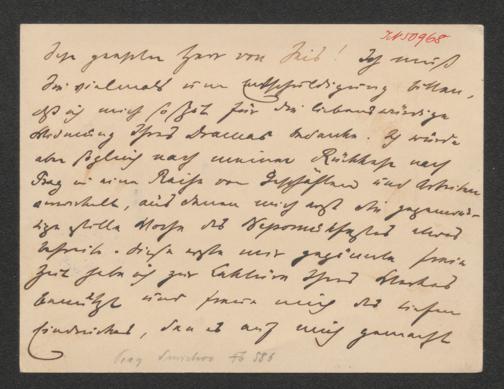 IN 50968
Sehr geehrter Herr von Weis! Ich muß
Sie vielmals um Entschuldigung bitten,
daß ich mich so spät für die liebenswürdige
Widmung Ihres Dramas bedanke. Ich wurde
aber sogleich nach meiner Rückkehr nach
Prag in eine Reihe von Geschäften und Arbeiten
verwickelt, aus denen mich erst die gegenwär-
tige stille Woche des Nepomukfestes etwas
befreite. Diese erste mir gegönnte freie
Zeit habe ich zur Lektüre Ihres Werkes
benützt und freue mich des tiefen
Eindruckes, den es auf mich gemacht
Prag Smichov